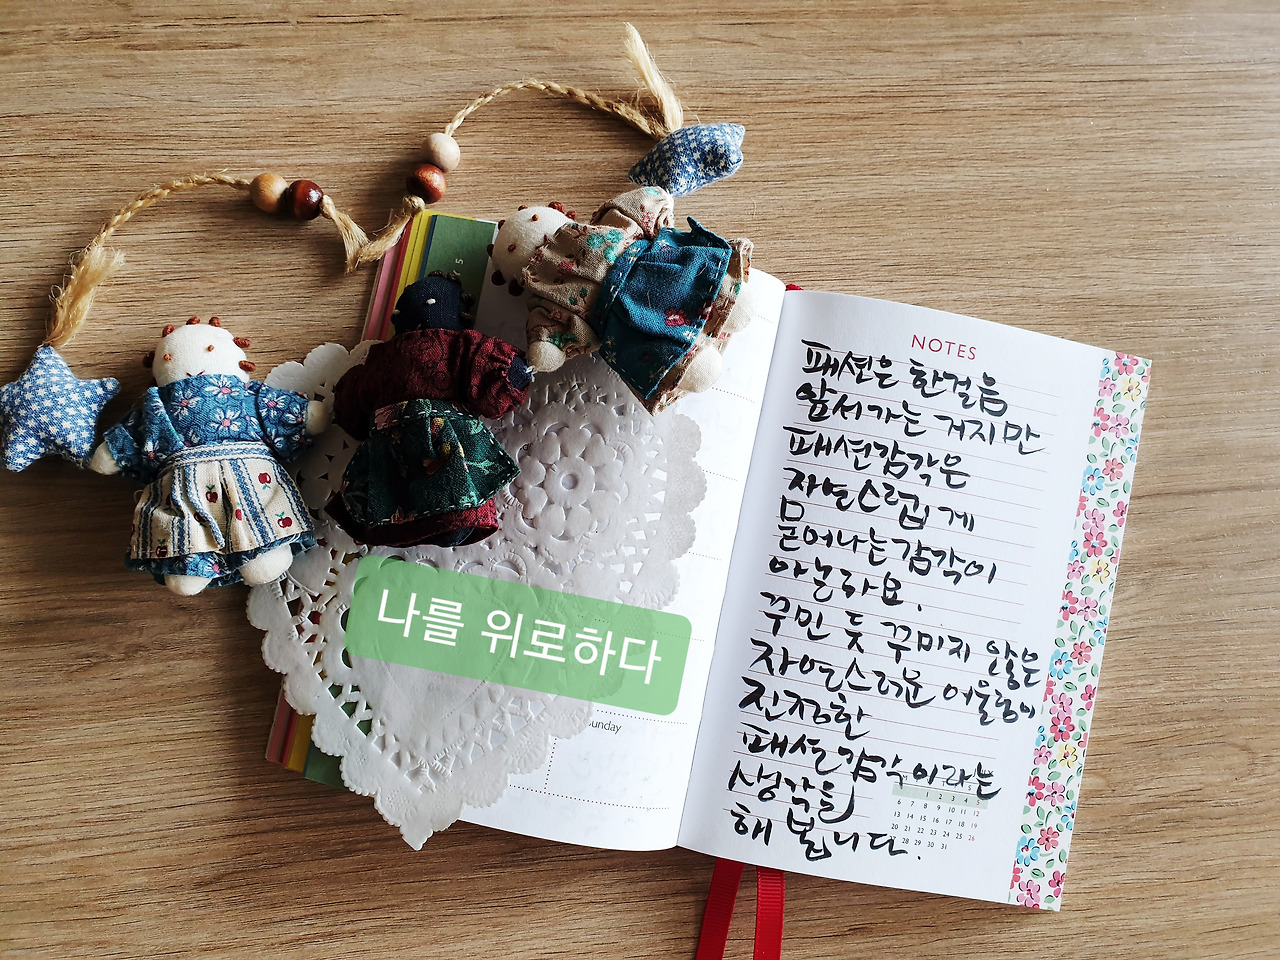 나를 위로하다
sunday
NOTES
패션은 한걸음
앞서가는 거지만
패션감각은
자연스럽게
몸
묻어나는 감각이
아는라요.
꾸민 듯 꾸미지 않은
자연스러운 어울림이
진정한
패션감각이라는
생각을
해 봅니다.
1 2 3 4 5
6 7 8 9 10 11 12
13 14 15 16 17 18 19
20 21 22 23 24 25 26
28 29 30 31